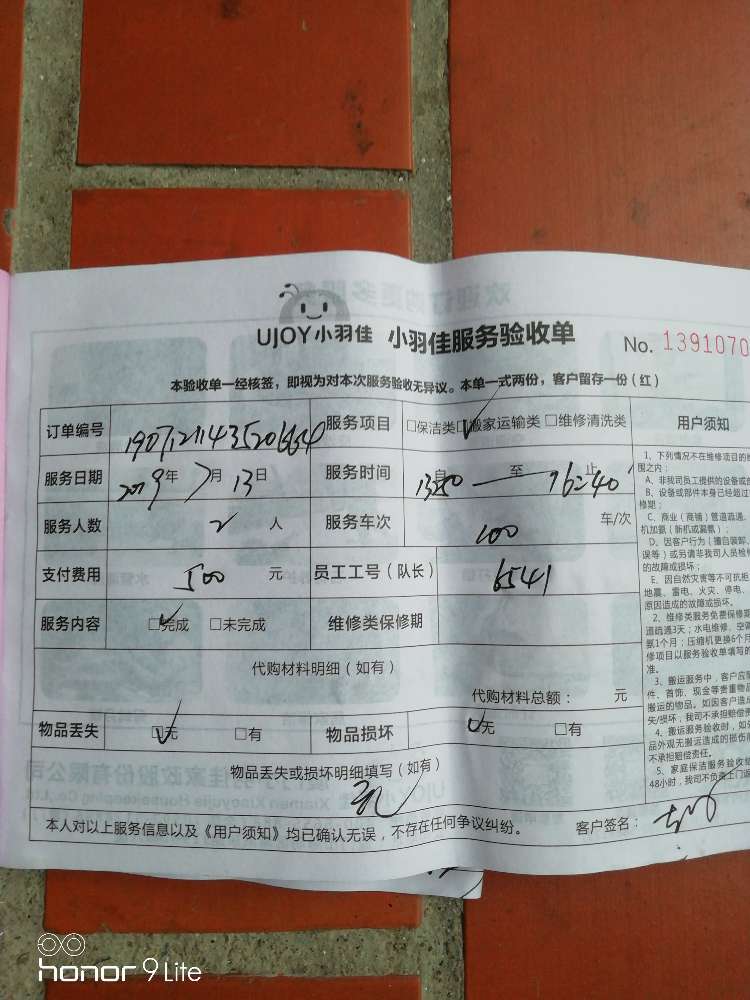 UJOY小羽佳 小羽佳服务验收单 No. 1391070
本验收单一经核签，即视为对本次服务验收无异议。本单一式两份，客户留存一份（红）
订单编号 服务项目 □保洁类 ☑搬家运输类 □维修清洗类 用户须知
服务日期 2019年7月13日 服务时间 自 至 16:40 止
服务人数 2 人 服务车次 车/次
支付费用 500 元 员工工号（队长） 6541
服务内容 ☑完成 □未完成 维修类保修期
代购材料明细（如有）
代购材料总额： 元
物品丢失 ☑无 □有 物品损坏 ☑无 □有
物品丢失或损坏明细填写（如有）
无
本人对以上服务信息以及《用户须知》均已确认无误，不存在任何争议纠纷。 客户签名：
1、下列情况不在维修项目的
围之内：
A、非我司员工提供的设备或
B、设备或部件本身已经超过
修期；
C、商业（商铺）管道疏通、
机加氨（新机或漏氨）；
D、因客户行为（擅自装卸、
误等）或另请非我司人员检
的故障或损坏；
E、因自然灾害等不可抗拒
地震、雷电、火灾、停电、
原因造成的故障或损坏。
2、维修类服务免费保修期
道疏通3天；水电维修、空调
氨1个月；压缩机更换6个月
修项目以服务验收单填写的
准。
3、搬运服务中，客户应
件、首饰、现金等贵重物
搬运的物品。如因客户造
失/损坏，我司不承担赔偿责
4、搬运服务验收时，如
品外观无搬运造成的损伤
不承担赔偿责任。
5、家庭保洁服务验收
48小时，我司不负责上门返
honor 9 Lite